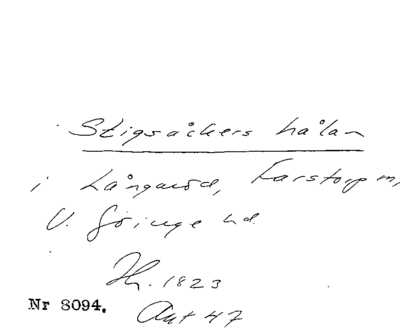 Stigsåkers hålan
i Långaröd, Farstorp m,
V. Göinge hd.
Hr. 1823
Nr 8094. Aut 47